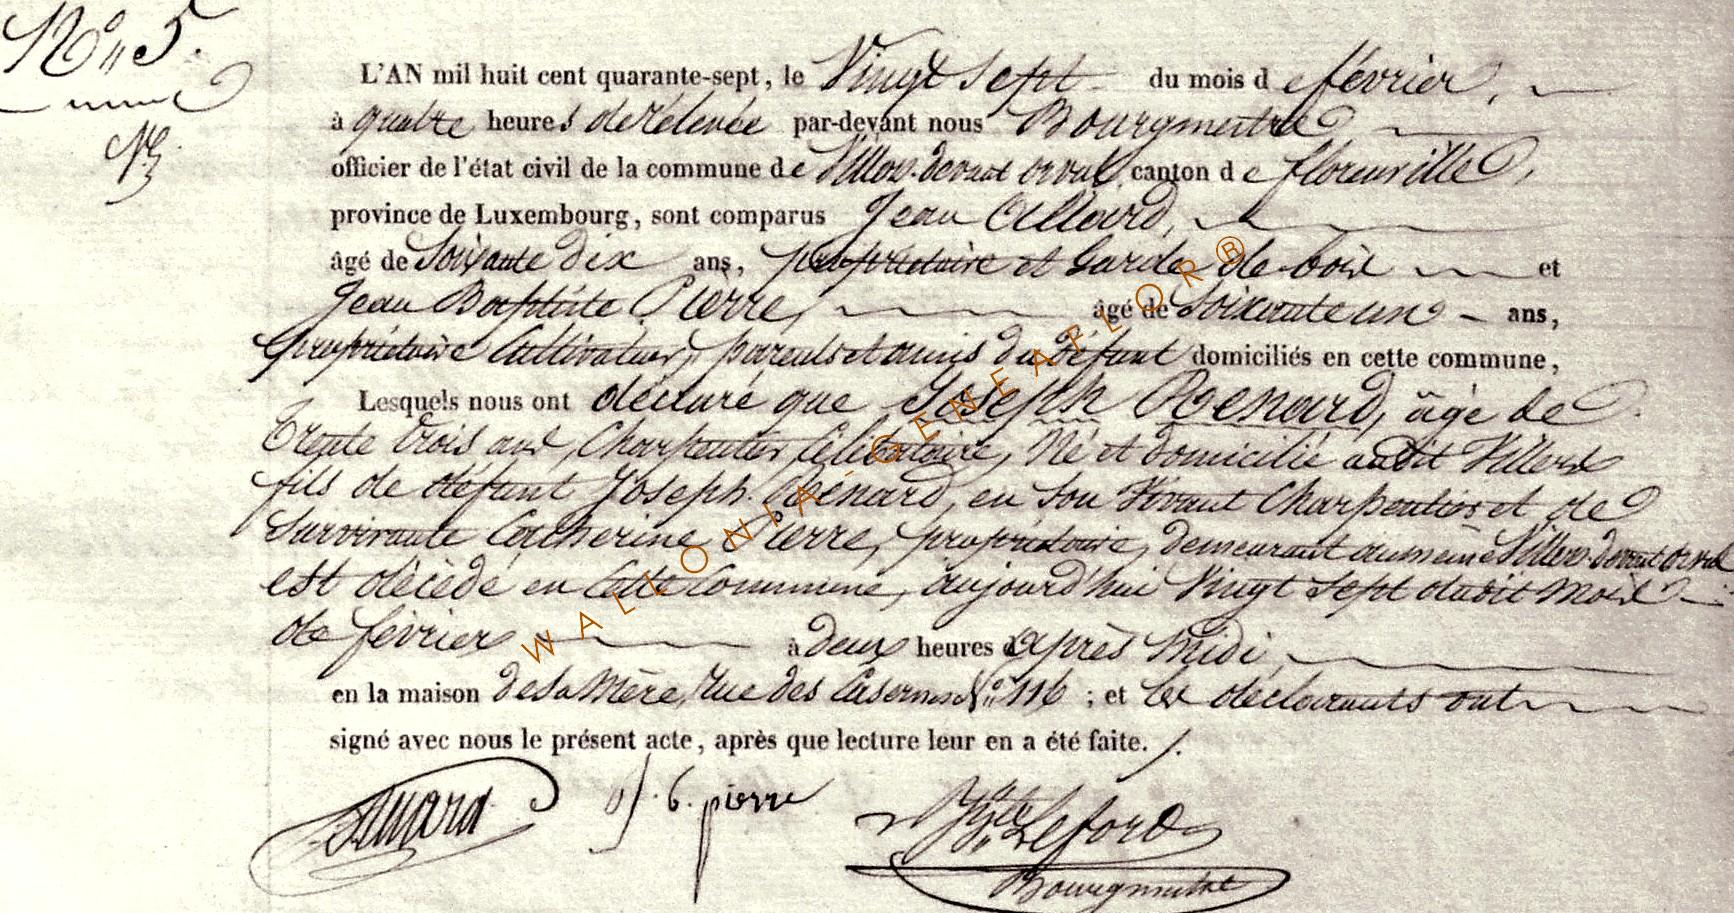 N° 5.
L'AN mil huit cent quarante-sept, le Vingt sept du mois de février,
à quatre heures de rélevée par-devant nous Bourgmestre
officier de l'état civil de la commune de Villers-devant orval, canton de florenville,
province de Luxembourg, sont comparus Jean Allard,
âgé de Soixante dix ans, propriétaire et Garde de bois et
Jean Baptiste Pierre, âgé de Soixante un ans,
propriétaire Cultivateur, parents et amis du défunt domiciliés en cette commune,
Lesquels nous ont déclaré que Joseph Renard, âgé de
Trente trois ans, Charpentier, Célibataire, Né et domicilié audit Villers
fils de défunt Joseph Renard, en son Vivant Charpentier et de
Survivante Catherine Pierre, propriétaire, demeurant au même Villers-devant orval
est décédé en Cette Commune, aujourd'hui Vingt Sept dudit Mois
de février à deux heures d'après Midi
en la maison de Sa Mère, Rue des Casernes N° 116 ; et les déclarants ont
signé avec nous le présent acte, après que lecture leur en a été faite. /.
J. B. pierre
Lefort
Bourgmestre
WALLONIA - GENEAFLOR®